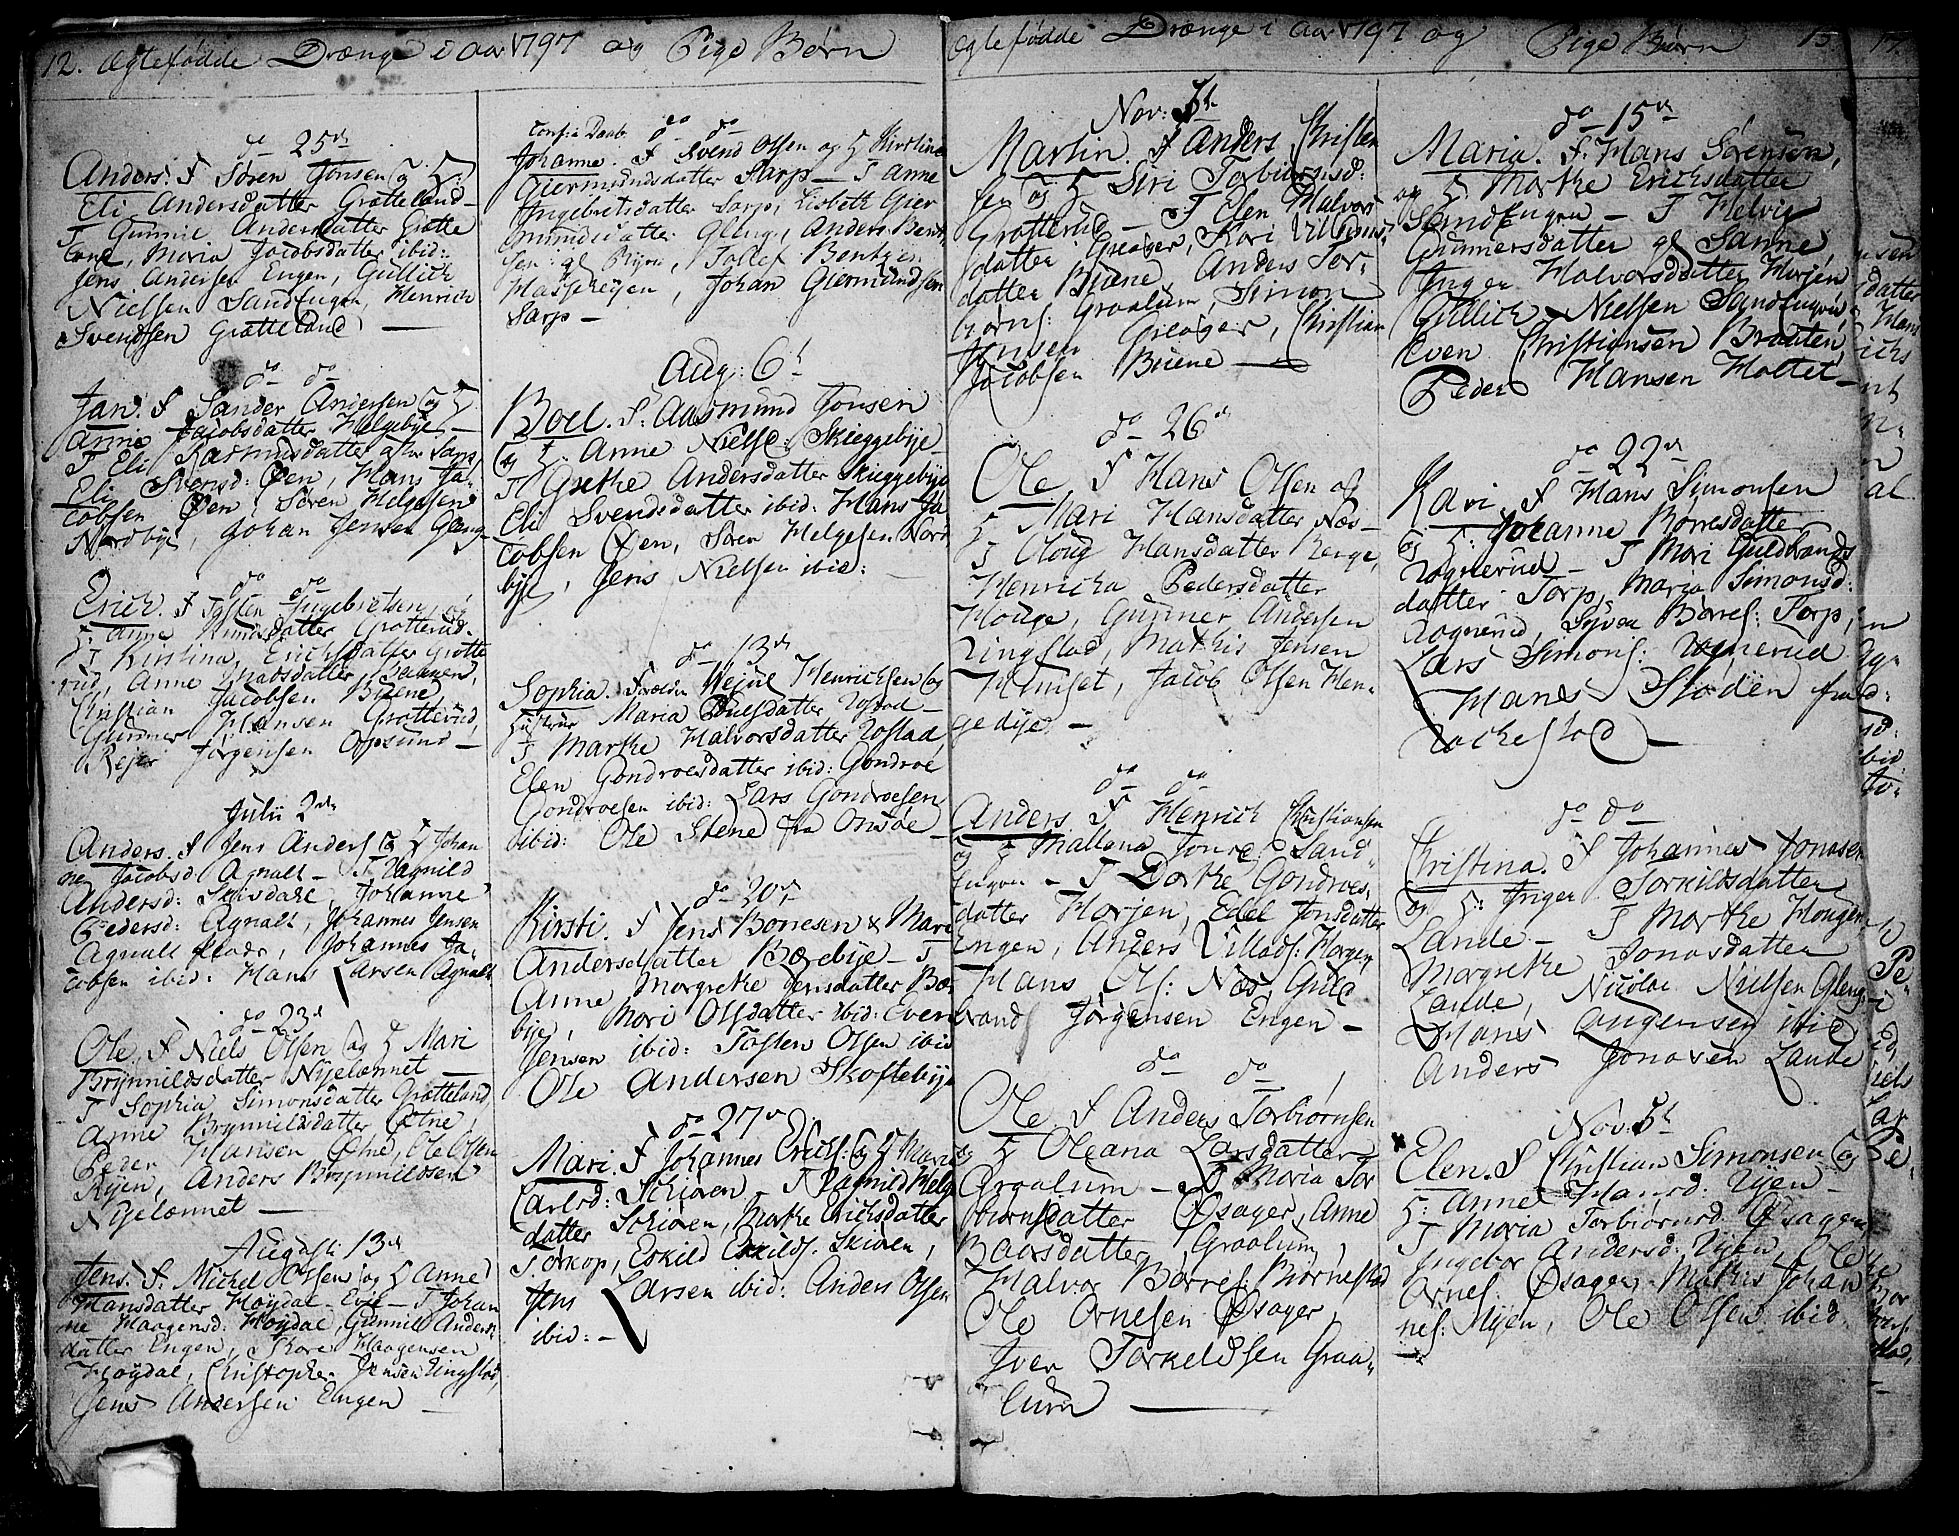 12. Ægtefødde Drænge i Aar 1797 og Pige Børn
do 25de
Anders. F Sören Jonsen og H:
Eli Andersdatter Grætteland -
F Gunnil Andersdatter Grætte
land, Maria Jacobsdatter ibid:
Jens Andersen Engen, Gullich
Nielsen Sandengen, Henrich
Svendsen Grætteland -
do do
Jan. F Sander Andersen og H
Anne Jacobsdatter Helgebye -
F Eli Rasmusdatter Sarp,
Eli Svensd: Øen, Hans Ja-
cobsen Øen, Sören Helgesen
Nordbye, Johan Jensen Gleng
do do
Erich. F Tosten Ingebretsen og
H. Anne Knudsdatter Grotterud.
F Kirstina Erichsdatter Grotte
rud, Anne
Christian Jacobsen Buene,
Gunner Hansen Grotterud,
Rejer Jörgensen Opsund -
Julii 2den
Anders. F Jens Anders: og H Johan
ne Jacobsd Agnalt - F Ragnild
Andersd: Skisdahl, Johanne
Pedersd: Agnalt, Johannes Jensen
Agnalt Johannes Ja-
cobsen ibid: Hans Larsen Agnalt
do 23d
Ole. F Niels Olsen og H Mari
Brynnildsdatter Nyelænnet -
F Sophia Simonsdatter Grætteland,
Anne Brynnildsdatter Ætne,
Peder Hansen Ætne, Ole Olsen
Ryen, Anders Brynnildsen
Nyelænnet -
Augusti 13de
Jens. F. Michel Olsen og H Anne
Hansdatter Höydal - Evje - F Johan
ne Haagensd: Höydal, Gunnil Anders-
datter Engen, Thore Haagensen
Höydal, Christopher Jensen Ringstad,
Jens Andersen Engen -
Conf: i Daab. do do
Johanne. F Svend Olsen og H Kirstine
Giermundsdatter Sarp - F Anne
Ingebretsdatter Sarp, Lisbeth Gier
mundsdatter Gleng, Anders Bent
sen: gl Ryen, Tollef Bentsen
Hassehgen, Johan Giermundsen
Sarp -
Aug: 6t
Boel. F: Aasmund Jonsen
og H. Anne Nielsd: Skieggebye -
F Grethe Andersdatter Skieggebye
Eli Svendsdatter ibid: Hans Ja
cobsen Øen, Sören Helgesen Nord
bye, Jens Nielsen ibid:
do 13de
Sophia. Forældre Hejne Henrichsen og
Hustrue Maria Poulsdatter Rostad -
F Marthe Halvorsdatter Rostad,
Elen Gondroesdatter ibid: Gondroe
Gondroesen ibid: Lars Gondroesen
ibid: Ole Stene fra Onsöe -
do 20de
Kirsti. F Jens Borresen & Mari
Andersdatter Boebye - F
Anne Margrethe Jensdatter Boe
bye, Mari Olsdatter ibid: Even
Jensen ibid: Tosten Olsen ibid
Ole Andersen Skoftebye
do 27de
Mari. F Johannes Erichs: og H Mari
Carlsd: Schiöen, F Ragnild Helg
datter Schiöen, Marthe Erichsdatter
Torkop, Eskild Eskilds. Skiöen,
Jens Larsen ibid: Anders Olsen
ibid: -
Ægtefødde Drænge i Aar 1797 og Pige Børn 13.
Nov: 5t
Martin. F Anders Christen
sen og H Siri Torbiörnsd:
Grotterud - F Elen Halvors
datter Greager, Kari Villums-
datter Buene, Anders Tor-
biörns: Graalum, Simon
Jensen Greager, Christian
Jacobsen Buene -
do 26de
Ole F Hans Olsen og
H Mari Hansdatter Næs -
F Aloug Hansdatter Berge,
Henricha Pedersdatter
Houge, Gunner Andersen
Ringstad, Mathis Jensen
Huuset, Jacob Olsen Hen-
gedye -
do do
Anders F Henrich Christiansen
og H Mallena Jonsd: Sand-
Engen - F Dorthe Gondroes,
datter Horjen, Edel Jonsdatter
Engen, Anders Villads: Horgen
Hans Ols: Næs, Gul
brand Jörgensen Engen -
do do
Ole F Anders Torbiörnsen
og H Oleana Larsdatter
Graalum - F Maria Tor
biörnsdatter Øsager, Anne
Baarsdatter Graalum,
Halvor Börres: Biörnestad
Ole Arnesen Øsager,
Iver Torkeldsen Graa-
lum -
do 15de
Maria. F. Hans Sörensen,
og H Marthe Erichsdatter
Sandengen - F Helvig
Gunnersdatter gl Sanne,
Inger Halvorsdatter Horjen
Gullich Nielsen Sandengen,
Even Christiansen Braaten,
Peder Hansen Holtet -
do 22de
Kari F Hans Simonsen
og H: Johanne Borresdatter
Rognerud - F Mari Guldbrands
datter Torp, Maria Simonsd:
Rognerud, Syver Börres: Torp,
Lars Simons: Rognerud
Hans Stöden fra
Rachestad -
do do
Christina. F Johannes Jonasen
og H: Inger Torkildsdatter
Lande - F Marthe Hougen
Margrethe Jonasdatter
Lande, Nicolae Nielsen Gleng
Hans Augensen ibid
Anders Jonasen Lande
Nov: 5t
Elen. F Christian Simonsen og
H: Anne Hansd: Ryen -
F Maria Torbiörnsd. Øsager,
Ingebor Andersd: Ryen, Ole
Arnes: Øsager, Mathis Johan
nes: Ryen, Ole Olsen ibid.